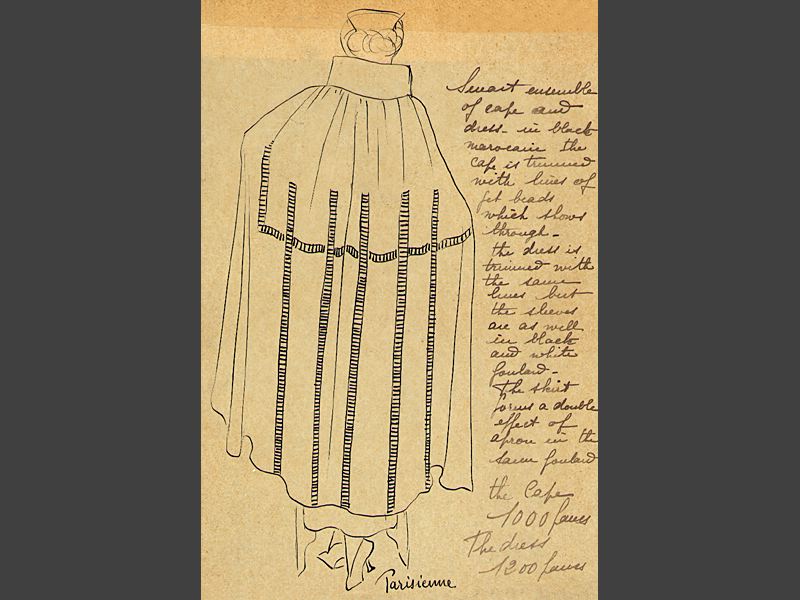 Smart ensemble
of cape and
dress - in black
marocain the
cape is trimmed
with lines of
jet beads
which shows
through -
the dress is
trimmed with
the same
lines but
the sleeves
are as well
in black
and white
foulard -
The skirt
forms a double
effect of
apron in the
same foulard
the Cape
1000 francs
The dress
1200 francs
Parisienne